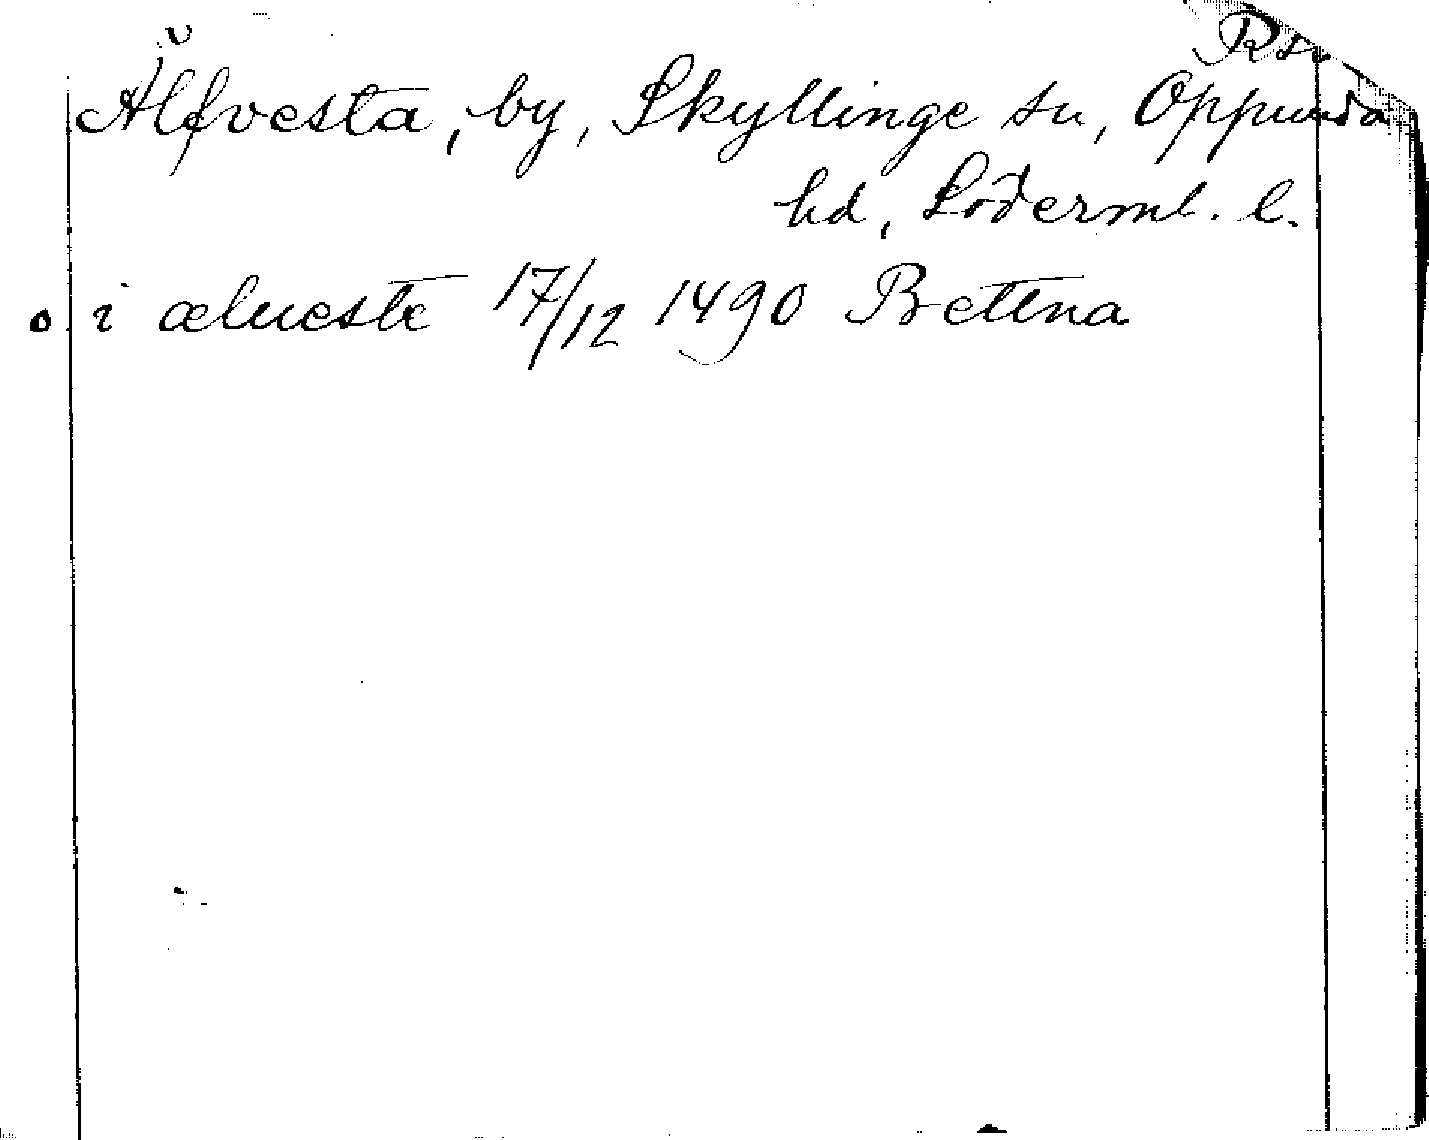 Rsv
Älfvesta, by, Skyllinge sn, Oppunda
hd, Söderml. l.
o i ælueste 17/12 1490 Bettna